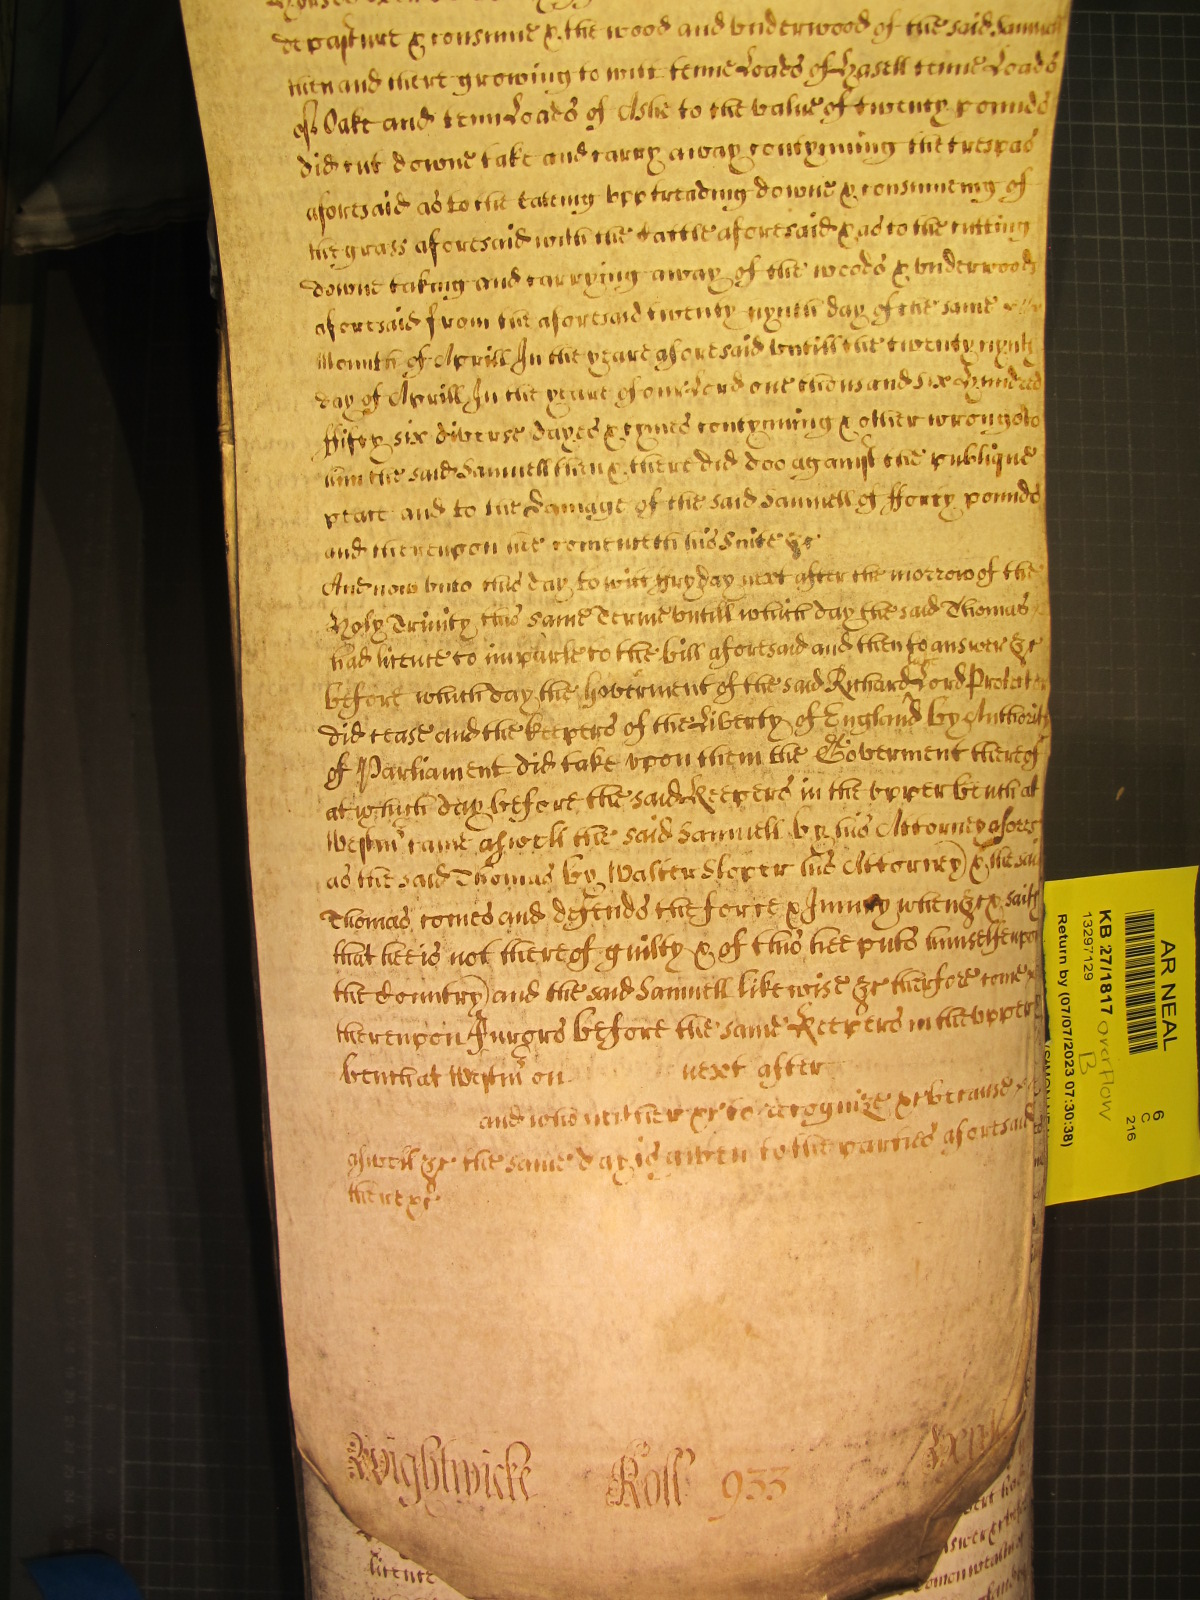 depasture & consume & the wood and underwood of the said Samuell
then and there growing to witt tenne Loades of Hasell tenne Loades
of Oake and tenn Loades of Ashe to the value of twenty pounds
did cut downe take and carry away contynuing the trespas
aforesaid as to the eateing upp treading downe & consumeing of
the grass aforesaid with the Cattle aforesaid & as to the cutting
downe taking and carrying away of the woods & underwoods
aforesaid from the aforesaid twenty nynth day of the same
Month of Aprill In the yeare aforesaid untill the twenty nynth
day of Aprill In the yeare of our Lord one thousand six hundred
ffifty six diverse dayes & tymes contynuing & other wrongs to
him the said Samuell then & there did doo against the publique
peace and to the damage of the said Samuell of fforty pounds
and thereupon hee comenceth his Suite &c
And now unto this day to witt ffryday next after the morrow of the
Holy Trinity this same Terme untill which day the said Thomas
had licence to imparle to the bill aforesaid and then to answer &c
before which day the Goverment of the said Richard Lord Protector
did cease and the keepers of the Liberty of England by Authority
of Parliament did take upon them the Goverment thereof
at which day before the said Keepers in the upper bench at
Westm̃ came aswell the said Samuell by his Attorney afores
as the said Thomas by Walter Sloper his Attorney & the said
Thomas comes and defends the force & Injury when &c & saith
that hee is not thereof guilty & of this hee puts himselfe upon
the Country and the said Samuell likewise &c therfore come
thereupon Jurors before the same Keepers in the upper
bench at Westm̃ on next after
and who neither &c to recognize &c because
aswell &c the same day is given to the parties aforesaid
there &c
Wightwicke Roll 933
licence
AR NEAL
KB 27/1817 overflow
B
13297129
Return by (07/07/2023 07:30:38)
6
C
216